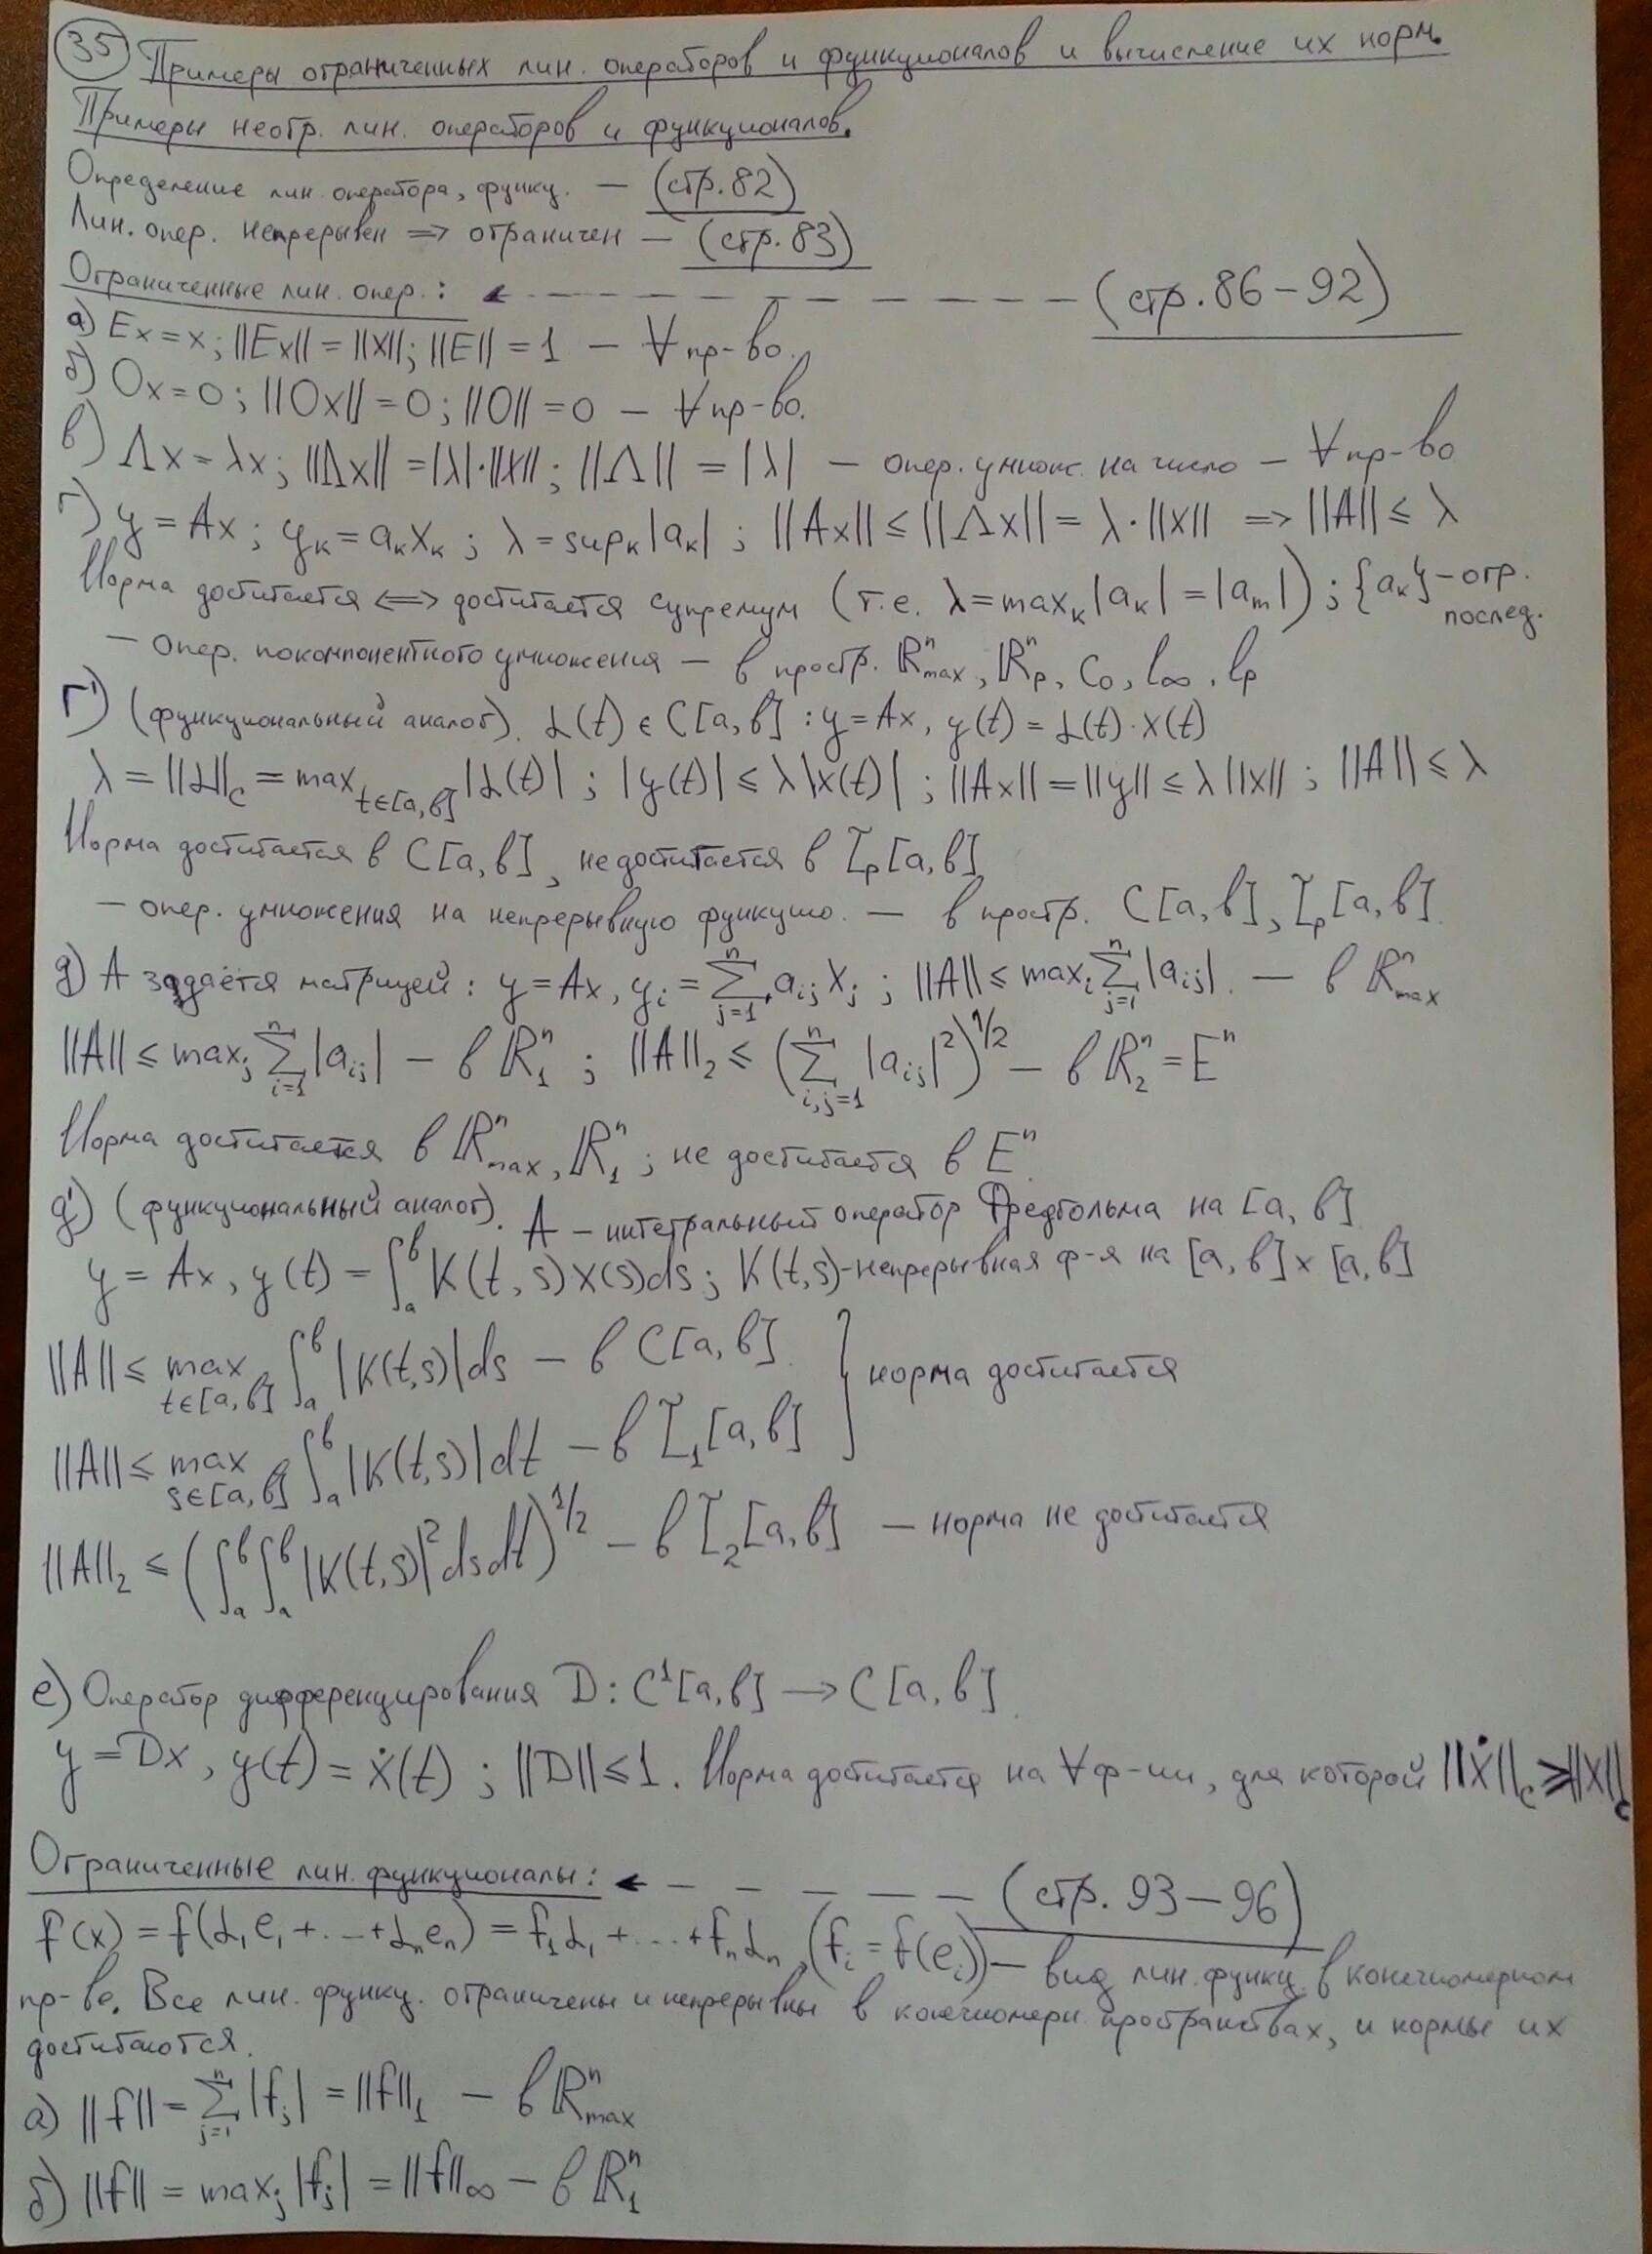 35 Примеры ограниченных лин. операторов и функционалов и вычисление их норм.
Примеры неогр. лин. операторов и функционалов.
Определение лин. оператора, функц. — (стр. 82)
Лин. опер. непрерывен => ограничен — (стр. 83)
Ограниченные лин. опер.: ← – – – – – – – – – (стр. 86–92)
а) Ex = x; ||Ex|| = ||x||; ||E|| = 1 — ∀ пр-во.
б) Ox = 0; ||Ox|| = 0; ||O|| = 0 — ∀ пр-во.
в) Λx = λx; ||Λx|| = |λ|·||x||; ||Λ|| = |λ| — опер. умнож. на число — ∀ пр-во
г) y = Ax; yₖ = aₖxₖ; λ = supₖ|aₖ|; ||Ax|| ≤ ||Λx|| = λ·||x|| => ||A|| ≤ λ
Норма достигается <=> достигается супремум (т.е. λ = maxₖ|aₖ| = |aₘ|); {aₖ} – огр. послед.
— Опер. покомпонентного умножения — в простр. ℝⁿ_max, ℝⁿ_p, c₀, l_∞, l_p
г') (функциональный аналог). α(t) ∈ C[a, b] : y = Ax, y(t) = α(t)·x(t)
λ = ||α||_C = max_{t∈[a,b]} |α(t)|; |y(t)| ≤ λ|x(t)|; ||Ax|| = ||y|| ≤ λ||x||; ||A|| ≤ λ
Норма достигается в C[a, b], не достигается в L̃_p[a, b]
— опер. умножения на непрерывную функцию. — в простр. C[a, b], L̃_p[a, b].
д) A задаётся матрицей: y = Ax, y_i = ∑_{j=1}^{n} a_{ij} x_j; ||A|| ≤ max_i ∑_{j=1}^{n} |a_{ij}|. — в ℝⁿ_max
||A|| ≤ max_j ∑_{i=1}^{n} |a_{ij}| — в ℝⁿ_1; ||A||₂ ≤ (∑_{i,j=1}^{n} |a_{ij}|²)^{1/2} — в ℝⁿ_2 = Eⁿ
Норма достигается в ℝⁿ_max, ℝⁿ_1; не достигается в Eⁿ.
д') (функциональный аналог). A – интегральный оператор Фредгольма на [a, b]
y = Ax, y(t) = ∫_a^b K(t, s)x(s)ds; K(t,s) – непрерывная ф-я на [a, b] x [a, b]
||A|| ≤ max_{t∈[a,b]} ∫_a^b |K(t,s)|ds — в C[a, b]. } норма достигается
||A|| ≤ max_{s∈[a,b]} ∫_a^b |K(t,s)|dt — в L̃₁[a, b]
||A||₂ ≤ (∫_a^b ∫_a^b |K(t,s)|² ds dt)^{1/2} — в L̃₂[a, b] — норма не достигается
е) Оператор дифференцирования D : C¹[a, b] → C[a, b].
y = Dx, y(t) = ẋ(t); ||D|| ≤ 1. Норма достигается на ∀ ф-ии, для которой ||ẋ||_C ≥ ||x||_C
Ограниченные лин. функционалы: ← – – – – – – (стр. 93–96)
f(x) = f(α₁e₁ + ... + αₙeₙ) = f₁α₁ + ... + fₙαₙ, (f_i = f(e_i)) — вид лин. функц. в конечномерном
пр-ве. Все лин. функц. ограничены и непрерывны в конечномерн. пространствах, и нормы их
достигаются.
а) ||f|| = ∑_{j=1}^{n} |f_j| = ||f||₁ — в ℝⁿ_max
б) ||f|| = max_j |f_j| = ||f||_∞ — в ℝⁿ_1